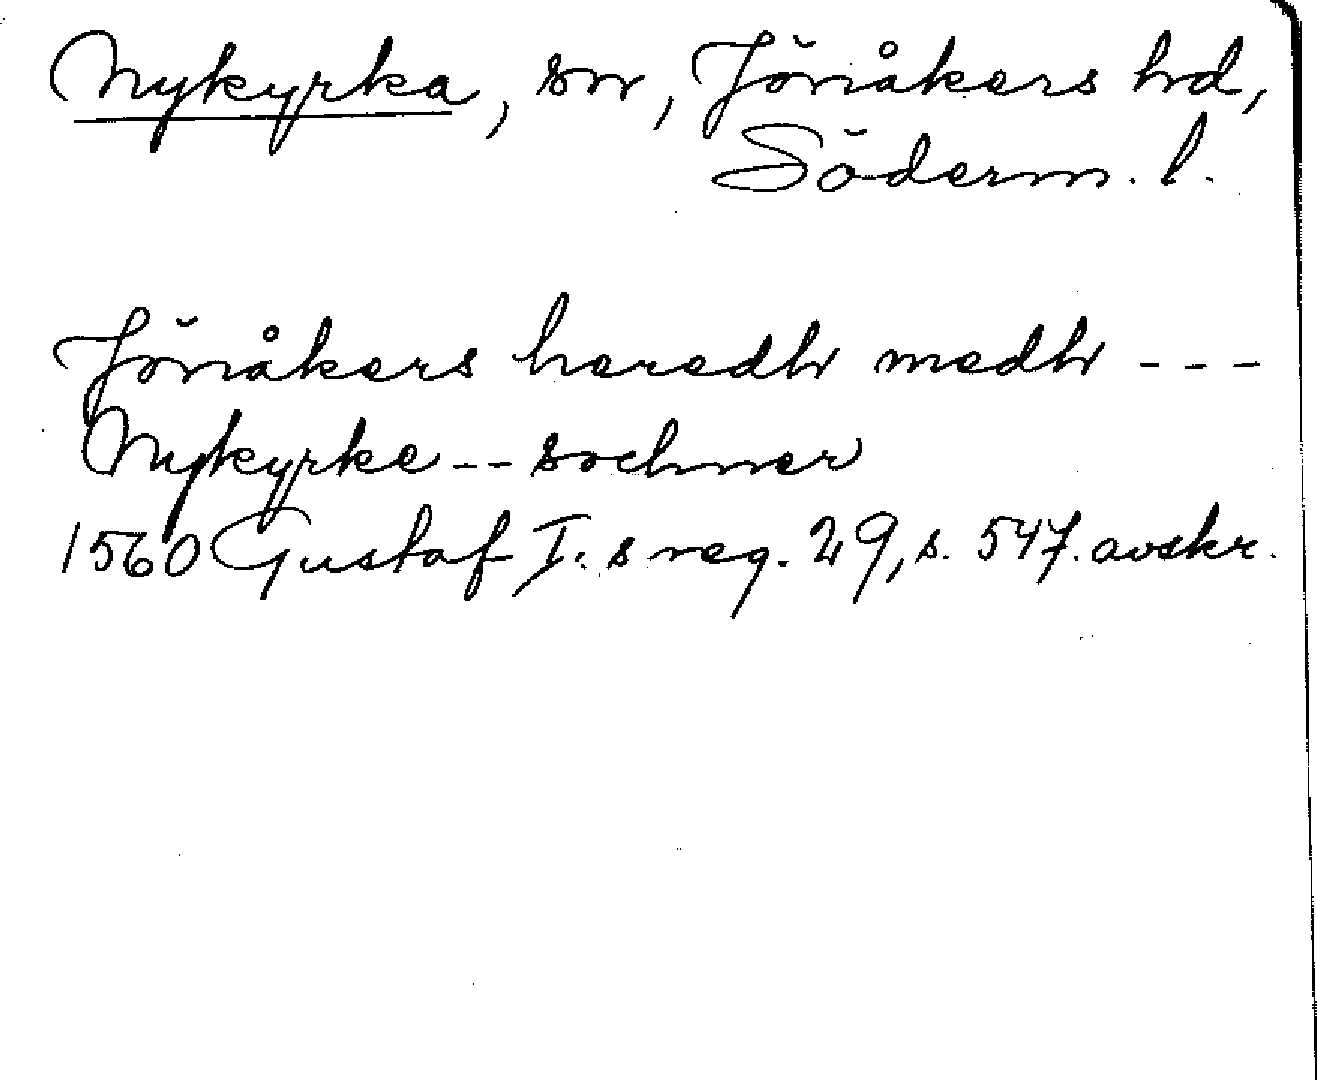 Nykyrka, sn, Jönåkers hd,
Söderm. l.
Jönåkers heredh medh ---
Nykyrke -- sochner
1560 Gustaf I:s reg. 29, s. 547. avskr.